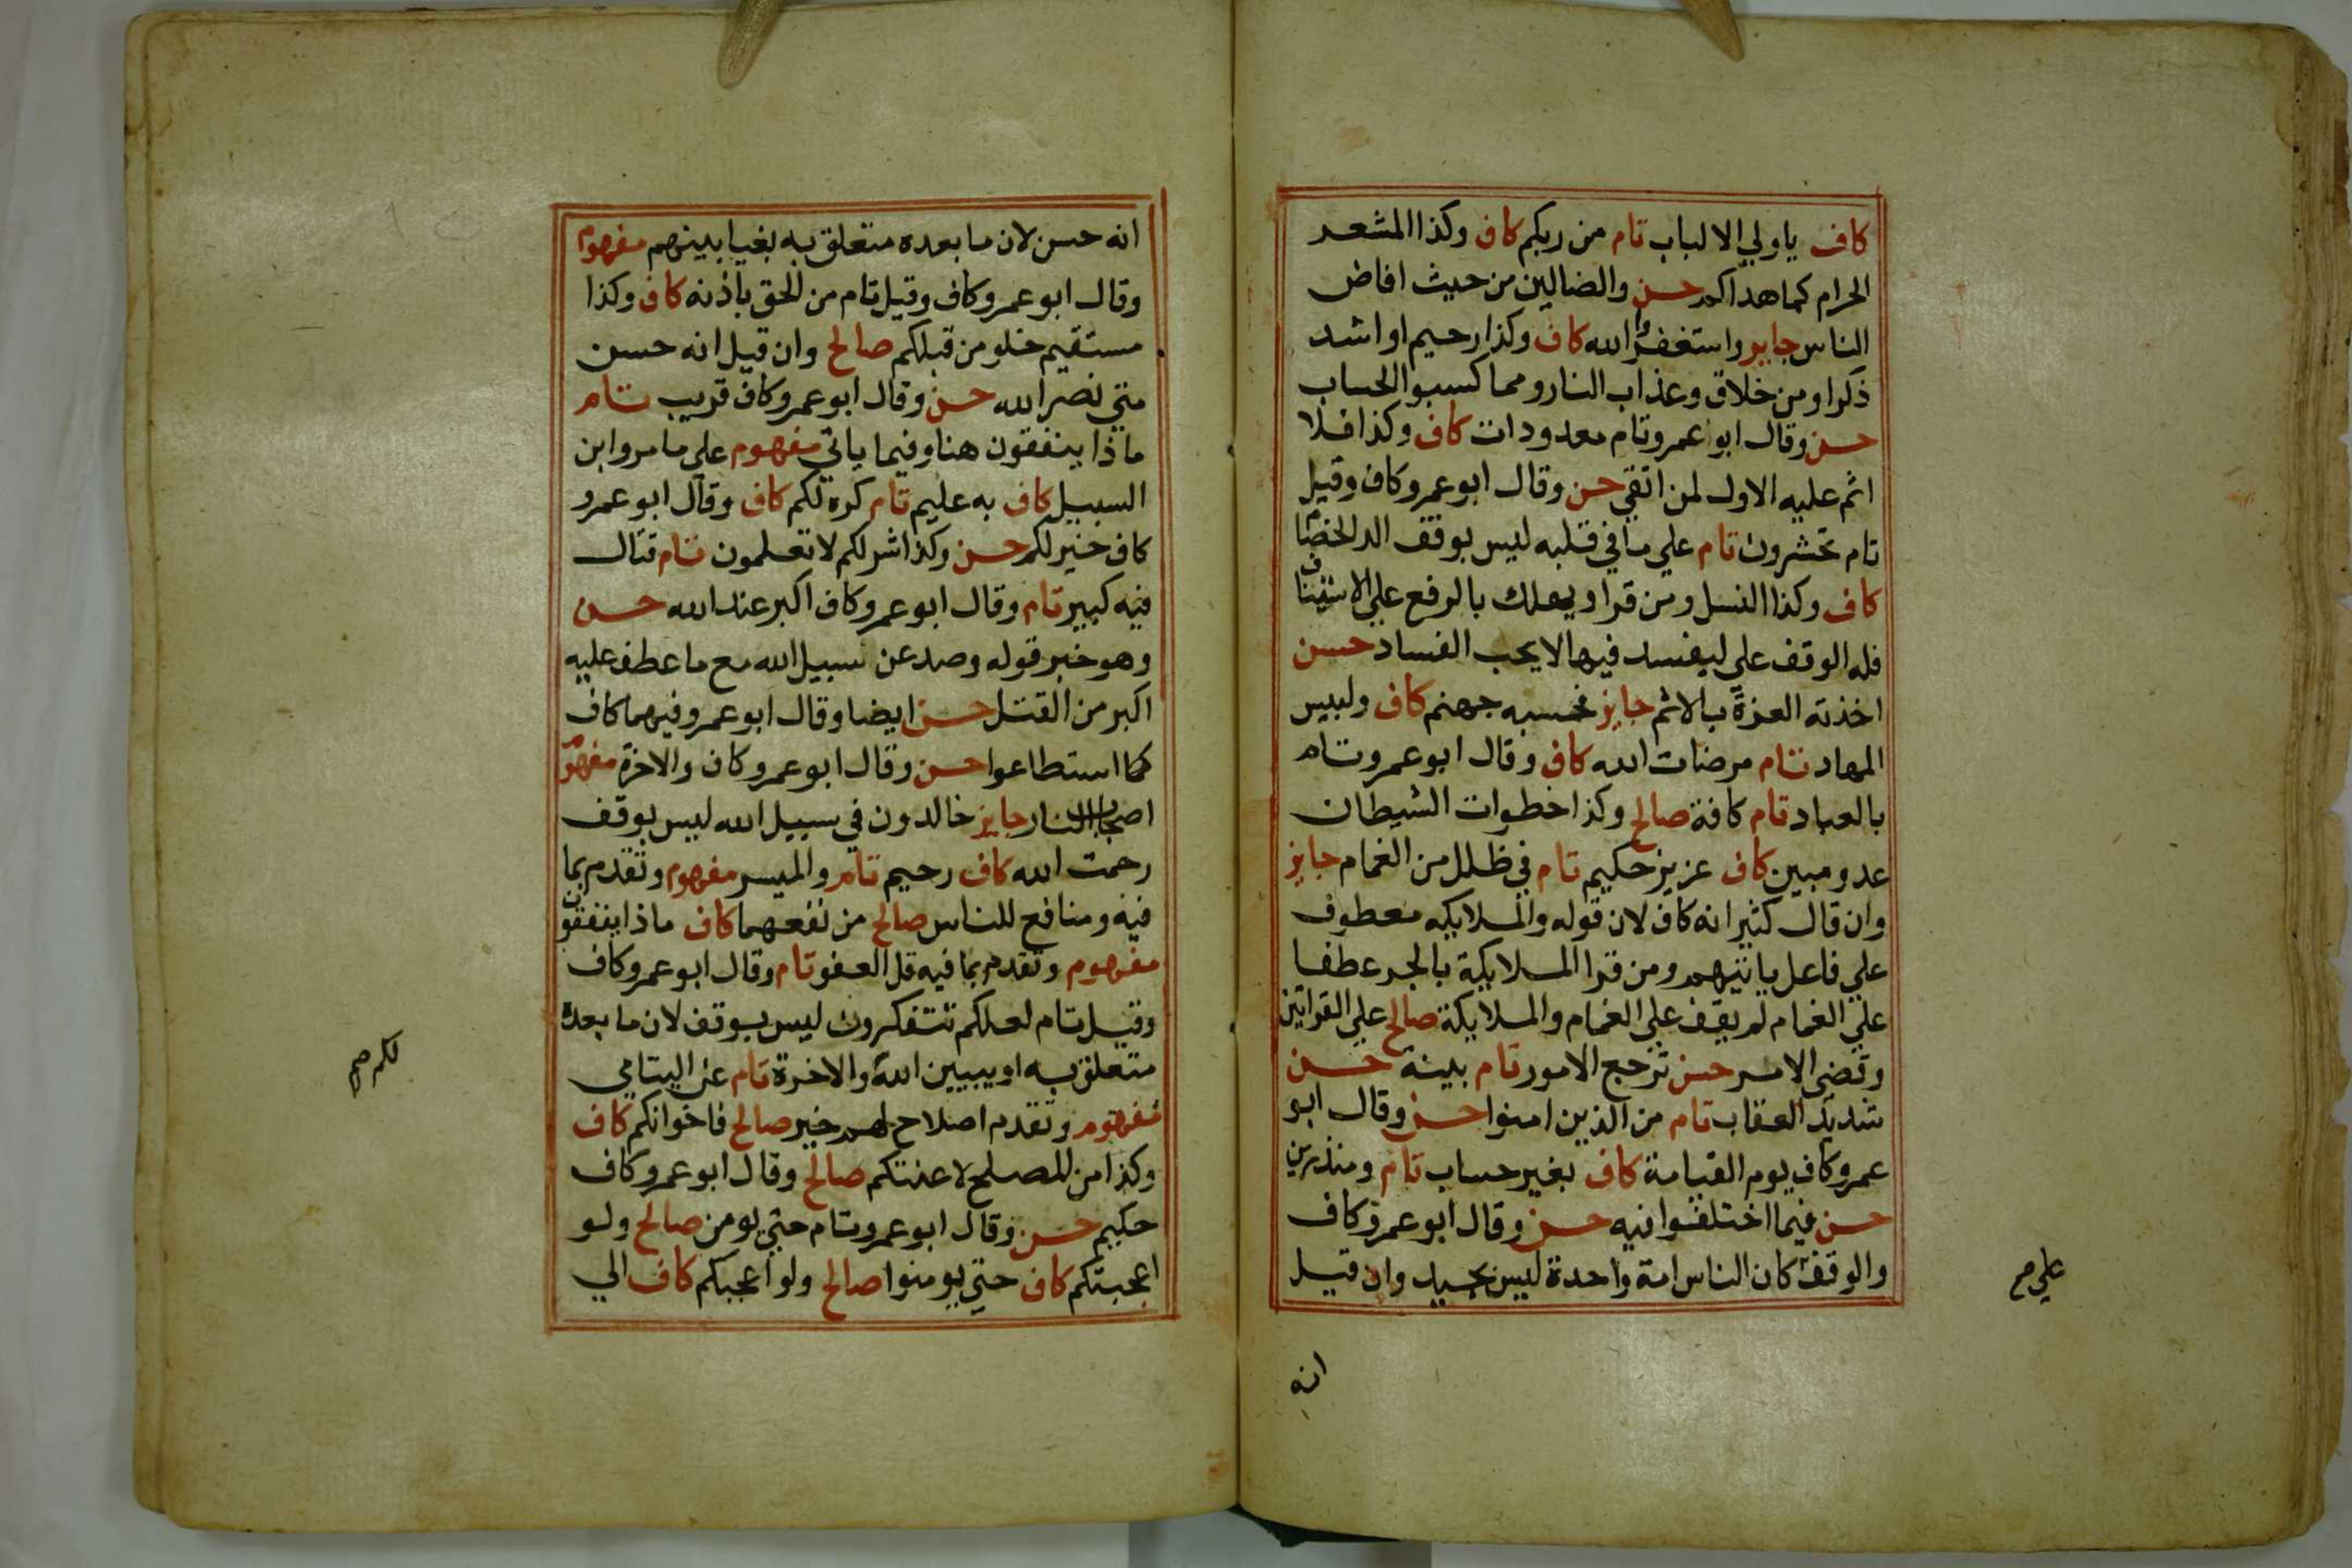 كاف ياولي الالباب تام من ربكم كاف وكذا المشعر
الحرام كما هداكم حسن والضالين من حيث افاض
الناس جايز واستغفروا الله كاف وكذا رحيم او اشد
ذكرا ومن خلاق وعذاب النار ومما كسبوا الحساب
حسن وقال ابوا عمرو تام معدودات كاف وكذا فلا
اثم عليه الاول لمن اتقي حسن وقال ابو عمرو كاف وقيل
تام تحشرون تام علي ما في قلبه ليس بوقف الد الخصام
كاف وكذا النسل ومن قرا ويهلك بالرفع علي الاستيناف
فله الوقف علي ليفسد فيها لا يحب الفساد حسن
اخذته العزة بالاثم جايز فحسبه جهنم كاف ولبيس
المهاد تام مرضات الله كاف وقال ابو عمرو تام
بالعباد تام كافة صالح وكذا خطوات الشيطان
عدو مبين كاف عزيز حكيم تام في ظلل من الغمام جايز
وان قال كثير انه كاف لان قوله والملايكه معطوف
علي فاعل ياتيهم ومن قرا الملايكة بالجر عطفا
علي الغمام لم يقف علي الغمام والملايكة صالح علي القراتين
وقضي الامر حسن ترجع الامور تام بينة حسن
شديد العقاب تام من الذين امنوا حسن وقال ابو
عمرو كاف يوم القيامة كاف بغير حساب تام ومنذرين
حسن فيما اختلفوا فيه حسن وقال ابو عمرو كاف
والوقف كان الناس امة واحدة ليس بجيد وان قيل
علي صح
انه
انه حسن لان ما بعده متعلق به بغيا بينهم مفهوم
وقال ابو عمرو كاف وقيل تام من الحق باذنه كاف وكذا
مستقيم خلو من قبلكم صالح وان قيل انه حسن
متي نصر الله حسن وقال ابو عمرو كاف قريب تام
ماذا ينفقون هنا وفيما ياتي مفهوم علي ما مر وابن
السبيل كاف به عليم تام كره لكم كاف وقال ابو عمرو
كاف خير لكم حسن وكذا شر لكم لا تعلمون تام قتال
فيه كبير تام وقال ابو عمرو كاف اكبر عند الله حسن
وهو خبر قوله وصد عن سبيل الله مع ما عطف عليه
اكبر من القتل حسن ايضا وقال ابو عمرو فيهما كاف
كما استطاعوا حسن وقال ابو عمرو كاف والاخرة مفهوم
اصحاب النار جايز خالدون في سبيل الله ليس بوقف
رحمت الله كاف رحيم تام والميسر مفهوم وتقدم بما
فيه ومنافع للناس صالح من نفعهما كاف ماذا ينفقون
مفهوم وتقدم بما فيه قل العفو تام وقال ابو عمرو كاف
وقيل تام لعلكم تتفكرون ليس بوقف لان ما بعده
متعلق به او يبيين الله والاخرة تام عن اليتامي
مفهوم وتقدم اصلاح لهم خير صالح فاخوانكم كاف
وكذا من المصلح لاعنتكم صالح وقال ابو عمرو كاف
حكيم حسن وقال ابو عمرو تام حتي يومن صالح ولو
اعجبتكم كاف حتي يومنوا صالح ولو اعجبكم كاف الي
لكم صح